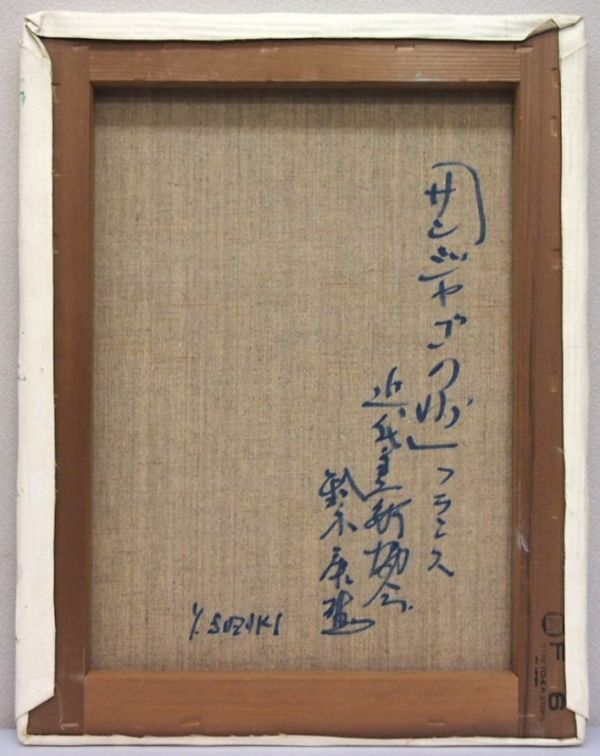 「サンジャゴの」フランス
近代美術協会
鈴木康
Y. SUZUKI
F 6